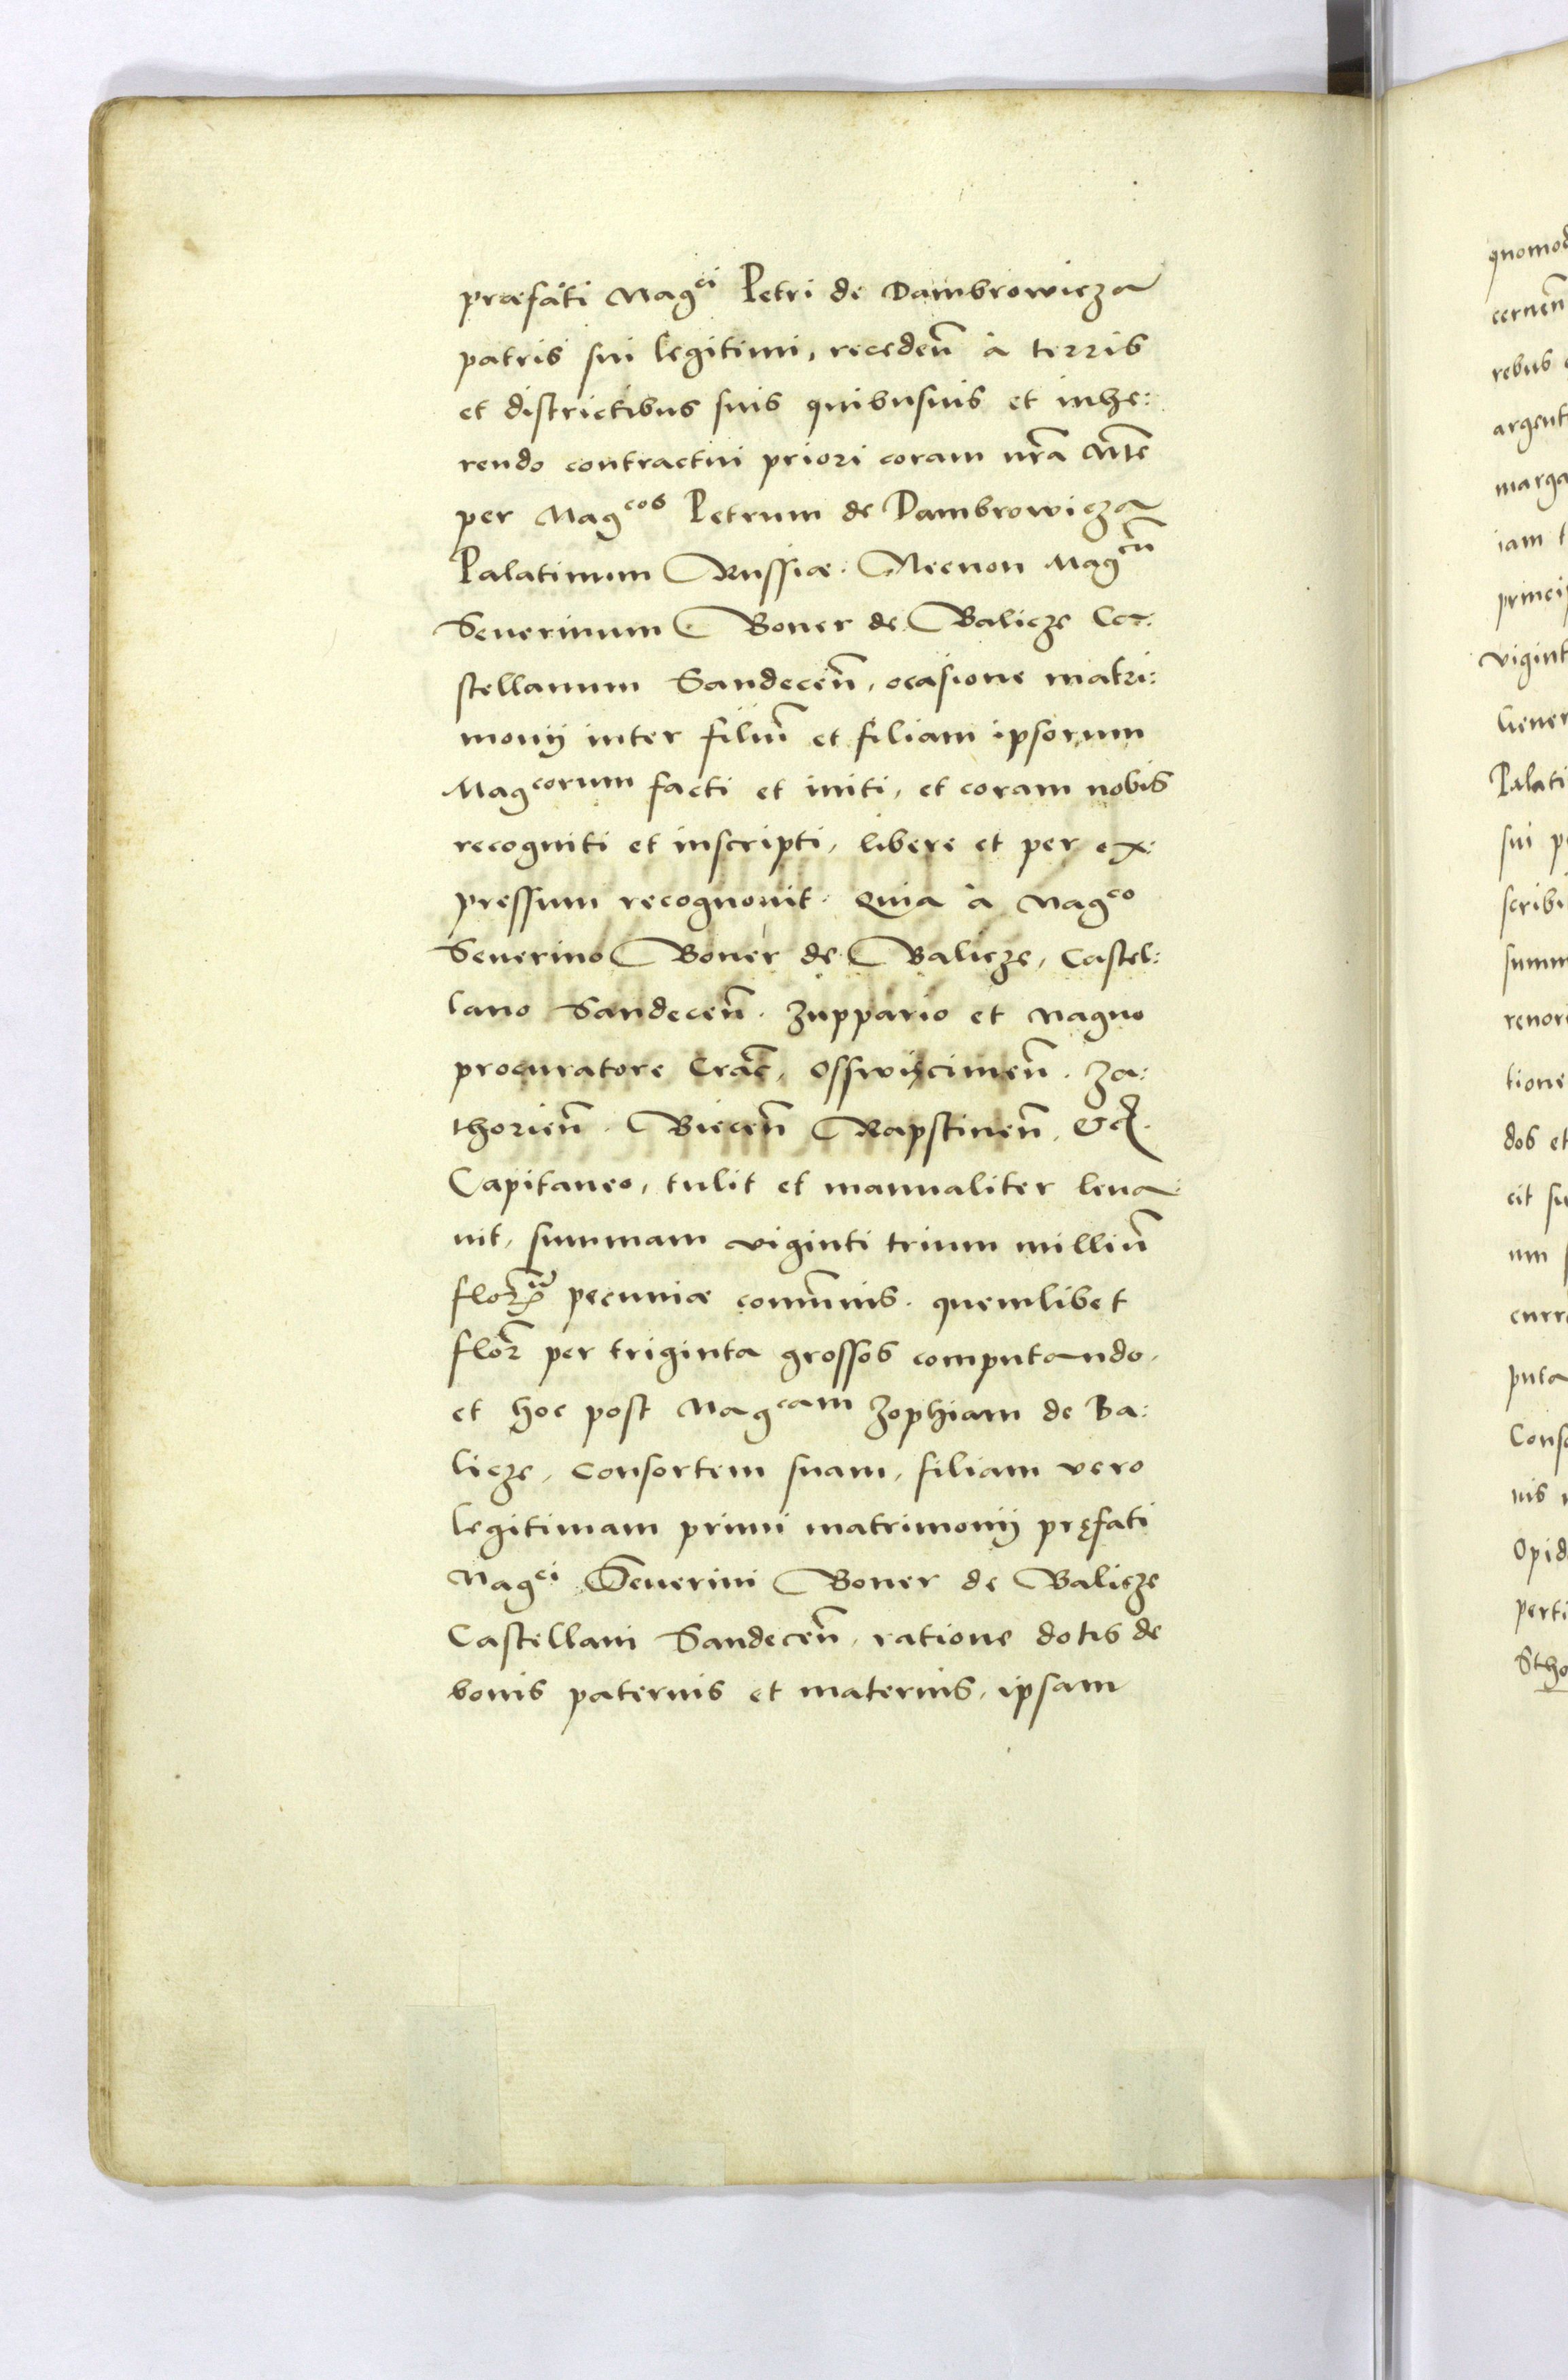 præfati Mag^ci Petri de Dambrowicza
patris sui legitimi, recedeñ à terris
et districtibus suis quibusuis et inhe:
rendo contractui priori coram nrã Mte
per Mag^cos Petrum de Dambrowicza
Palatinum Russiæ. Necnon Mag^cũ
Seuerinum Boner de Balicze Ca:
stellanum Sandeceñ, ocasione matri:
monij inter filiũ et filiam ipsorum
Mag^corum facti et initi, et coram nobis
recogniti et inscripti, libere et per ex:
pressum recognouit. Quia à Mag^co
Seuerino Boner de Balicze, Castel:
lano Sandeceñ. Zuppario et Magno
procuratore Crac̃, Osswiecimeñ. Za:
thorieñ. Bieceñ Rapstineñ, &c.
Capitaneo, tulit et manualiter leua:
uit, summam viginti trium milliũ
flor pecuniæ com̃unis. quemlibet
flor̃ per triginta grossos computando,
et hoc post Mag^cam Zophiam de Ba:
licze, Consortem suam, filiam vero
legitimam primi matrimonij pręfati
Mag^ci Seuerini Boner de Balicze
Castellani Sandeceñ, ratione dotis de
bonis paternis et maternis, ipsam
quomod
cerneñ
rebus
argent
marga
iam
princi
vigint
Gener
Palati
sui p
scribi
summ
renor
tione
dos et
cit su
um
curr
puta
Cons
nis
Opid
perti
Stho